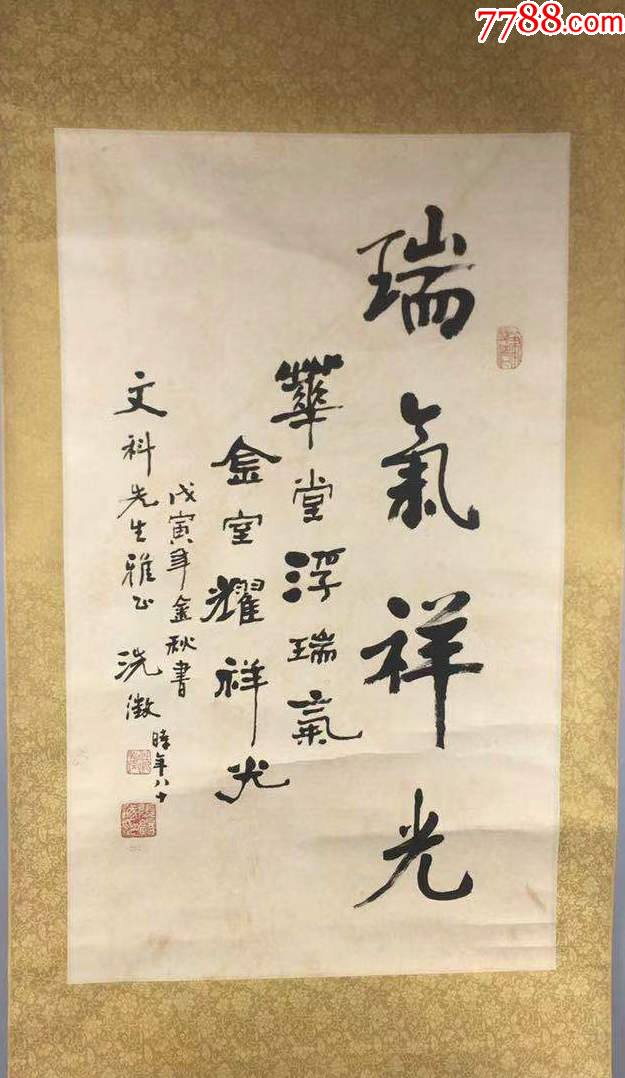 7788.com
瑞氣祥光
華堂浮瑞氣
金室耀祥光
戊寅年金秋書
文科先生雅正 洗澂 時年八十